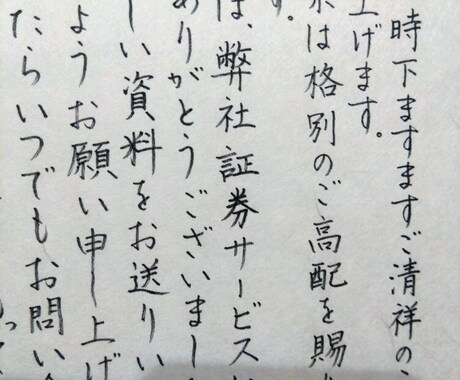 時下ますますご清祥の
上げます。
は格別のご高配を賜り
す。
は、弊社証券サービス
ありがとうございまし
しい資料をお送りい
ようお願い申し上げ
たらいつでもお問い